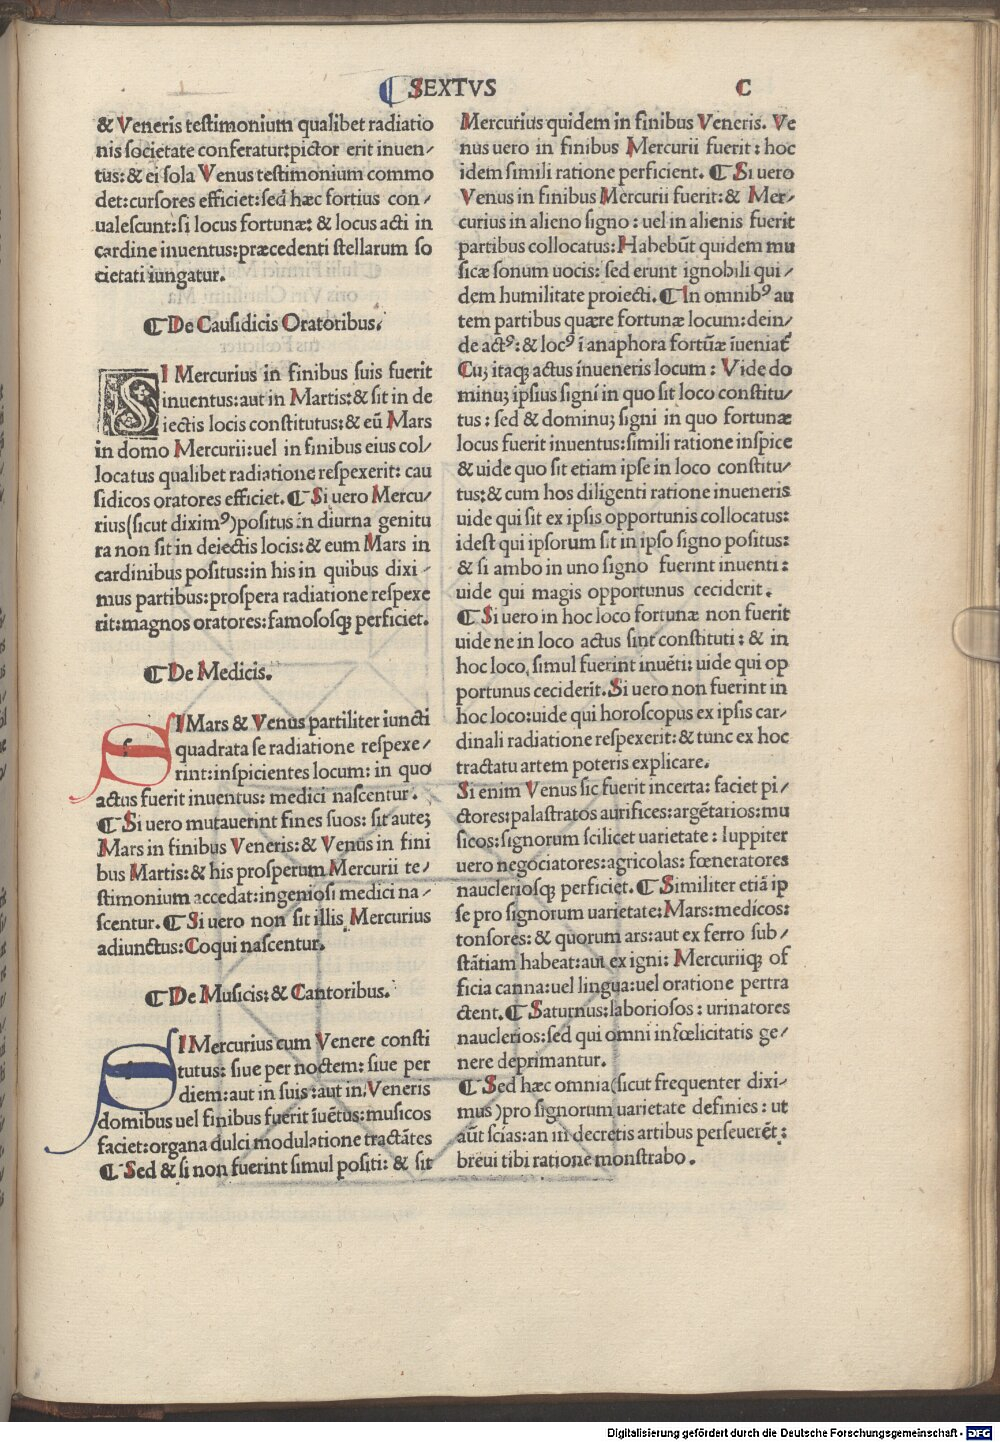 ⸿ SEXTVS
C
& Veneris teſtimonium qualibet radiatio
nis ſocietate conferatur:pictor erit inuen/
tus:& ei ſola Venus teſtimonium commo
det:curſores efficiet:ſed hæc fortius con/
ualeſcunt:ſi locus fortunæ: & locus acti in
cardine inuentus:præcedenti ſtellarum ſo
cietati iungatur.
⸿De Cauſidicis Oratoribus.
SI Mercurius in finibus ſuis fuerit
inuentus:aut in Martis:& ſit in de
iectis locis conſtitutus:& eū Mars
in domo Mercurii:uel in finibus eius col/
locatus qualibet radiatione reſpexerit: cau
ſidicos oratores efficiet.⸿Si uero Mercu/
rius(ſicut diximꝰ)poſitus in diurna genitu
ra non ſit in deiectis locis:& eum Mars in
cardinibus poſitus:in his in quibus dixi/
mus partibus:proſpera radiatione reſpexe
rit:magnos oratores:famoſoſqꝫ perficiet.
⸿De Medicis.
SI Mars & Venus partiliter iuncti
quadrata ſe radiatione reſpexe/
rint:inſpicientes locum: in quo
actus fuerit inuentus: medici naſcentur.
⸿Si uero mutauerint fines ſuos: ſit auteꝫ
Mars in finibus Veneris:& Venus in fini
bus Martis:& his proſperum Mercurii te/
ſtimonium accedat:ingenioſi medici na/
ſcentur.⸿Si uero non ſit illis Mercurius
adiunctus:Coqui naſcentur.
⸿De Muſicis:& Cantoribus.
SI Mercurius cum Venere conſti
tutus: ſiue per noctem: ſiue per
diem:aut in ſuis:aut in Veneris
domibus uel finibus fuerit īuētus:muſicos
faciet:organa dulci modulatione tractātes
⸿Sed & ſi non fuerint ſimul poſiti: & ſit
Mercurius quidem in finibus Veneris. Ve
nus uero in finibus Mercurii fuerit: hoc
idem ſimili ratione perficient. ⸿Si uero
Venus in finibus Mercurii fuerit:& Mer/
curius in alieno ſigno: uel in alienis fuerit
partibus collocatus:Habebūt quidem mu
ſicæ ſonum uocis: ſed erunt ignobili qui/
dem humilitate proiecti.⸿In omnibꝰ au
tem partibus quære fortunæ locum:dein/
de actꝰ:& locꝰ ī anaphora fortūæ īueniat̄
Cuꝫ itaqꝫ actus inueneris locum: Vide do
minuꝫ ipſius ſigni in quo ſit loco conſtitu/
tus: ſed & dominuꝫ ſigni in quo fortunæ
locus fuerit inuentus:ſimili ratione inſpice
& uide quo ſit etiam ipſe in loco conſtitu/
tus:& cum hos diligenti ratione inueneris
uide qui ſit ex ipſis opportunis collocatus:
ideſt qui ipſorum ſit in ipſo ſigno poſitus:
& ſi ambo in uno ſigno fuerint inuenti:
uide qui magis opportunus ceciderit.
⸿Si uero in hoc loco fortunæ non fuerit
uide ne in loco actus ſint conſtituti: & in
hoc loco ſimul fuerint inuēti: uide qui op
portunus ceciderit.Si uero non fuerint in
hoc loco:uide qui horoſcopus ex ipſis car/
dinali radiatione reſpexerit:& tunc ex hoc
tractatu artem poteris explicare.
Si enim Venus ſic fuerit incerta: faciet pi/
ctores:palaſtratos aurifices:argētarios:mu
ſicos:ſignorum ſcilicet uarietate: Iuppiter
uero negociatores:agricolas: fœneratores
naucleriosqꝫ perficiet.⸿Similiter etiā ip
ſe pro ſignorum uarietate:Mars:medicos:
tonſores:& quorum ars:aut ex ferro ſub/
ſtātiam habeat:aut ex igni: Mercuriiqꝫ of
ficia canna:uel lingua:uel oratione pertra
ctent.⸿Saturnus:laborioſos: urinatores
nauclerios:ſed qui omni infœlicitatis ge/
nere deprimantur.
⸿Sed hæc omnia(ſicut frequenter dixi/
mus)pro ſignorum uarietate definies: ut
aūt ſcias:an in decretis artibus perſeuerēt:
breui tibi ratione monſtrabo.
Digitalisierung gefördert durch die Deutsche Forschungsgemeinschaft - DFG